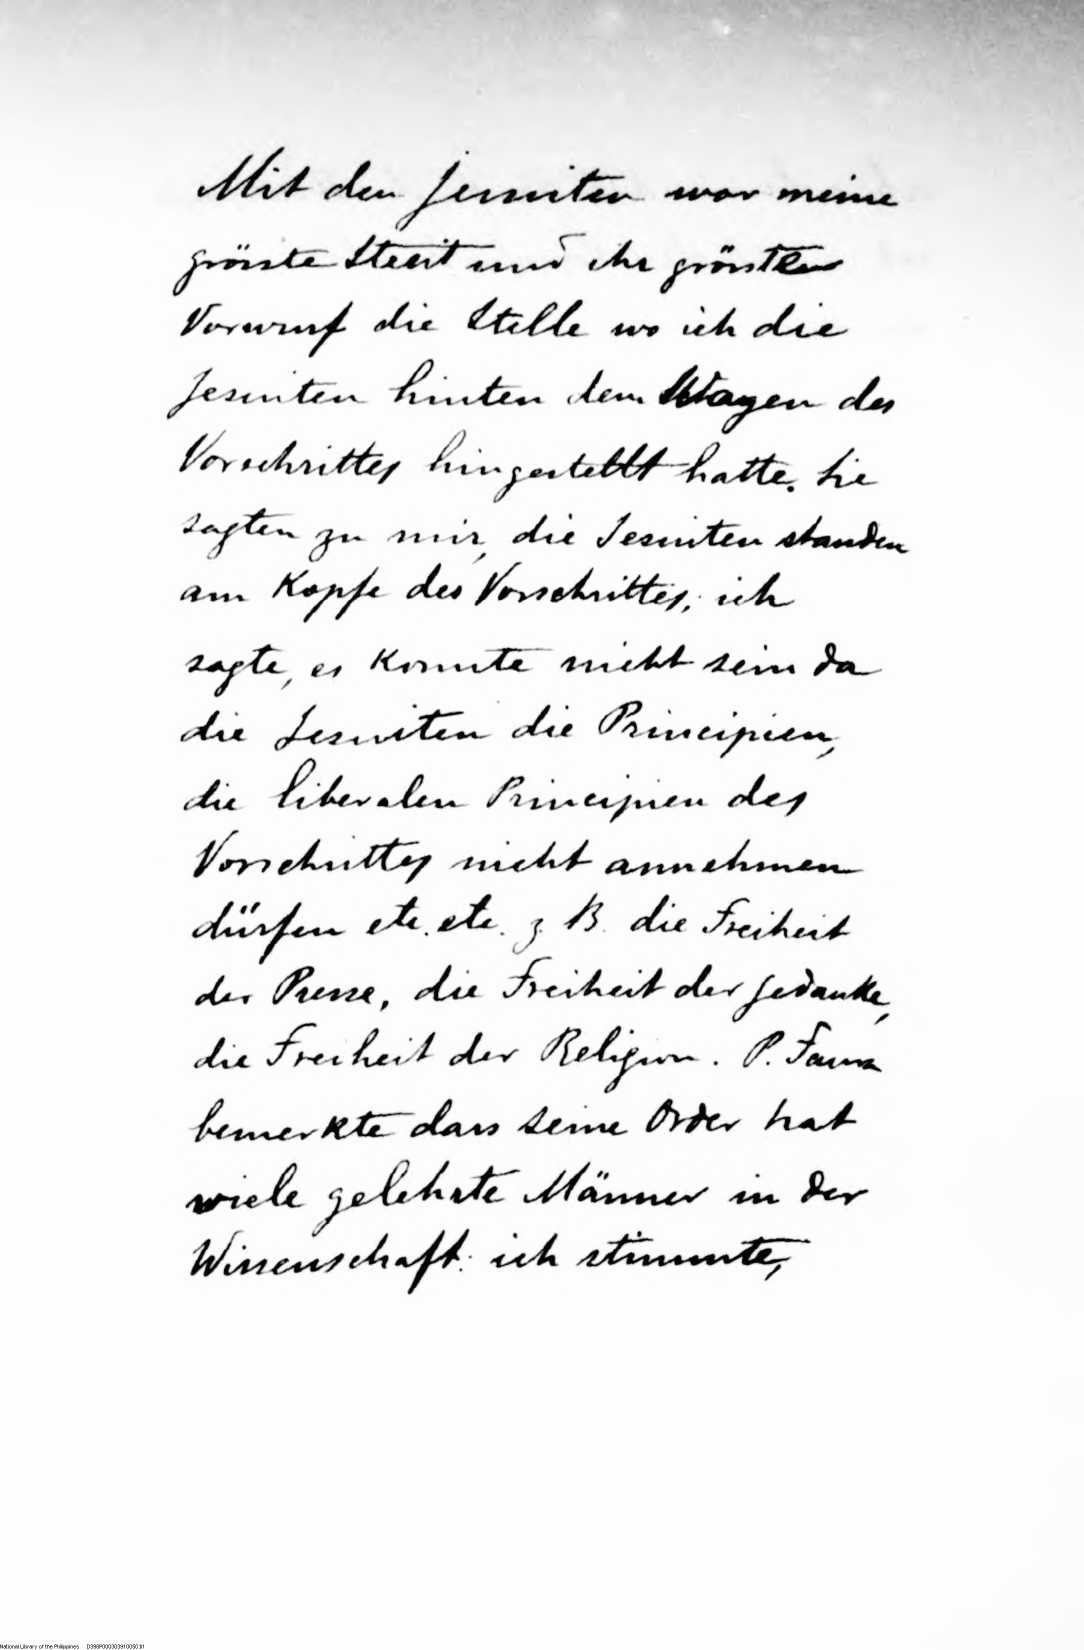 Mit den Jesuiten war meine
grösste Streit und ihr grössten
Vorwurf die Stelle wo ich die
Jesuiten hinten dem Wagen des
Vorschrittes hingestellt hatte. Sie
sagten zu mir, die Jesuiten standen
am Kopfe des Vorschrittes; ich
sagte, es konnte nicht sein da
die Jesuiten die Principien,
die liberalen Principien des
Vorschrittes nicht annehmen
dürfen etc. etc. z B. die Freiheit
der Presse, die Freiheit der Gedanke,
die Freiheit der Religion. P. Faura
bemerkte dass seine Order hat
viele gelehrte Männer in der
Wissenschaft: ich stimmte,
National Library of the Philippines